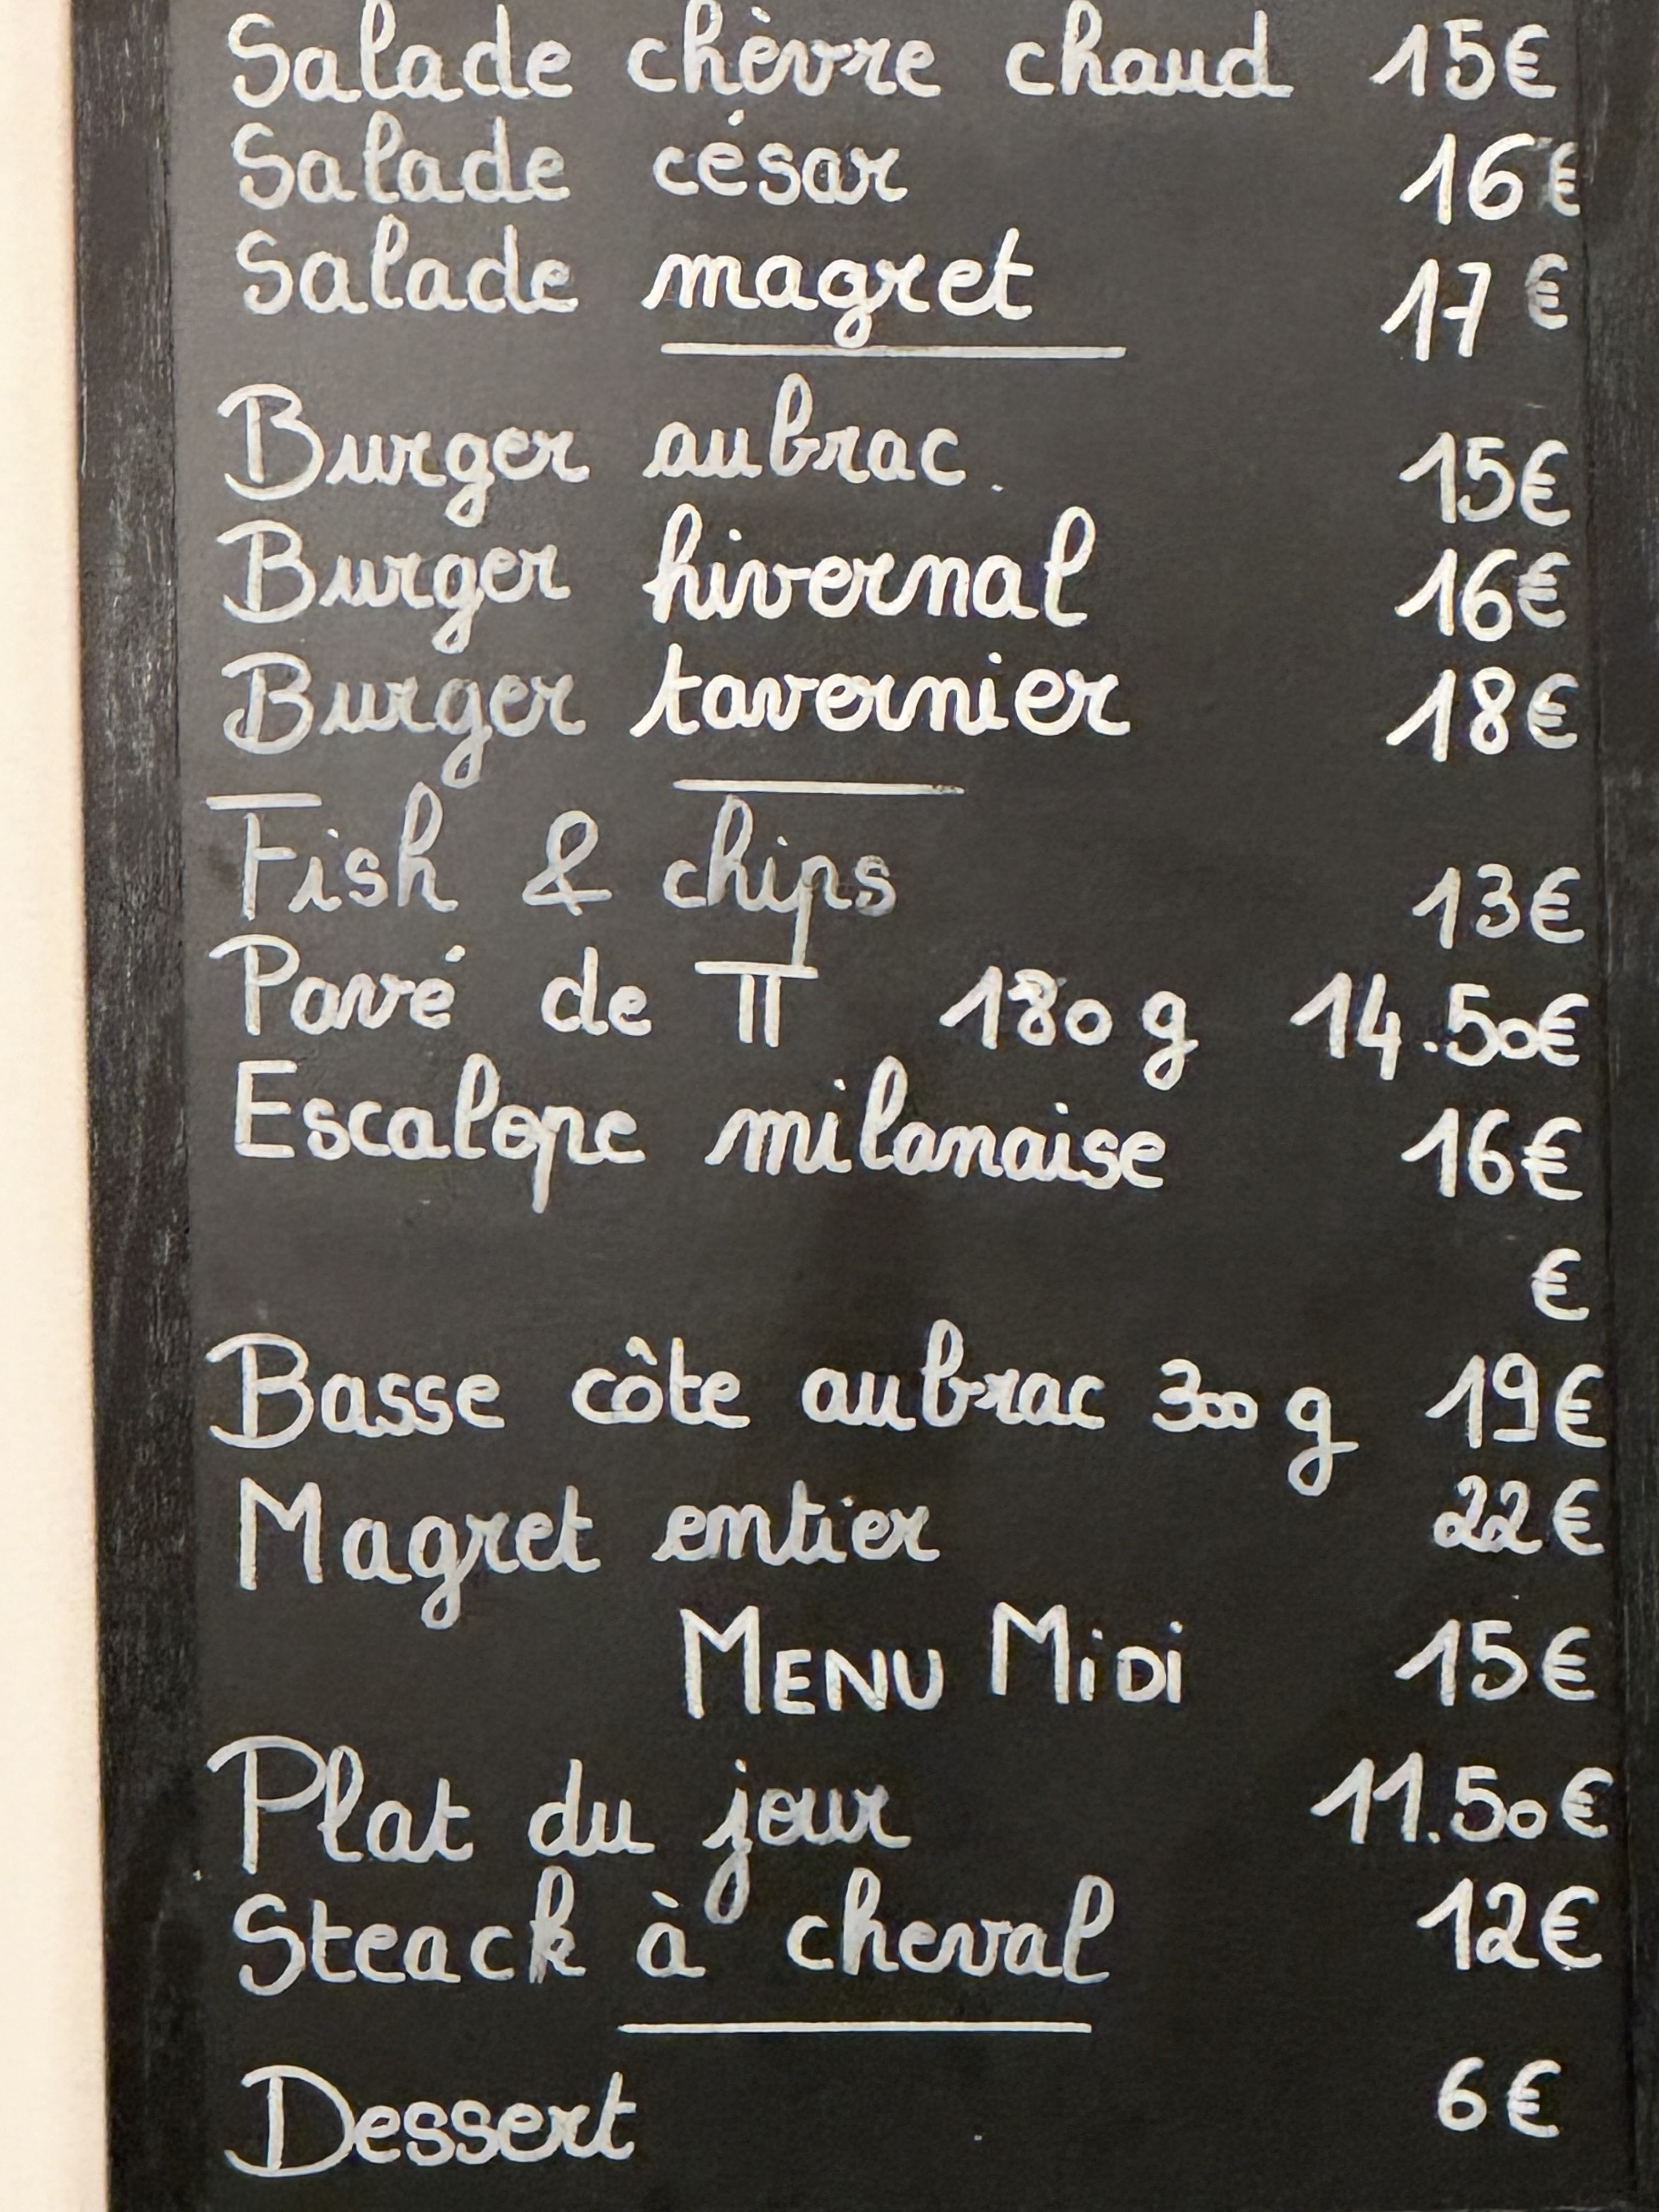 Salade chèvre chaud 15€
Salade césar 16€
Salade magret 17€
Burger aubrac. 15€
Burger hivernal 16€
Burger tavernier 18€
Fish & chips 13€
Pavé de π 180g 14.50€
Escalope milanaise 16€
€
Basse côte aubrac 300g 19€
Magret entier 22€
MENU MiDi 15€
Plat du jour 11.50€
Steack à cheval 12€
Dessert 6€